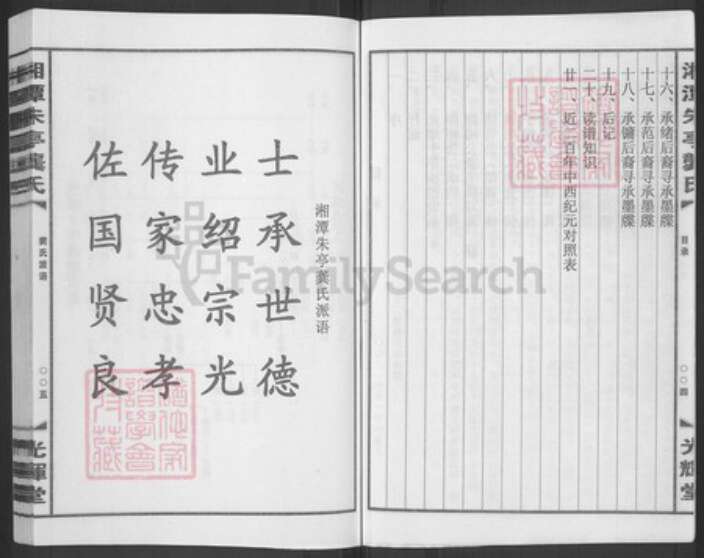 湘潭朱亭龔氏
目录
〇〇四
光輝堂
十六、承绪后裔寻承墨牒
十七、承范后裔寻承墨牒
十八、承镛后裔寻承墨牒
十九、后记
二十、读谱知识
廿一、近二百年中西纪元对照表
湘潭朱亭龚氏派语
士承世德
业绍宗光
传家忠孝
佐国贤良
湘潭朱亭龔氏
龚氏派语
〇〇五
光輝堂
FamilySearch